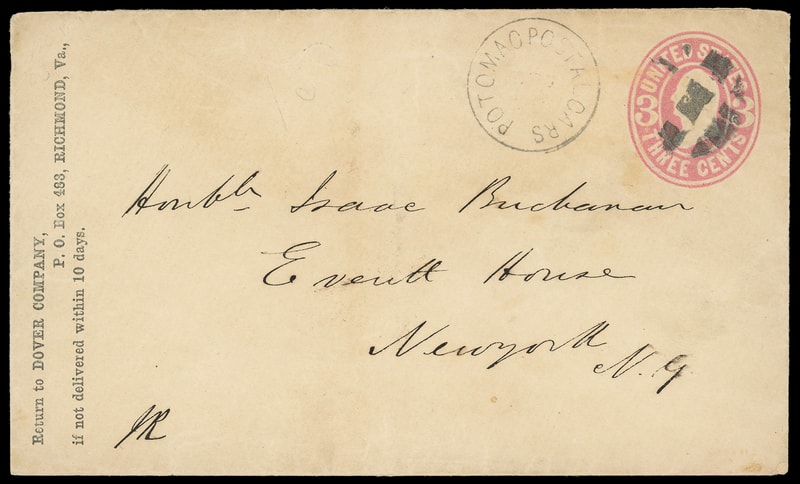 Return to DOVER COMPANY,
P. O. Box 483, RICHMOND, Va.,
if not delivered within 10 days.
POTOMAC POSTAL CARS
UNITED STATES
3 3
THREE CENTS
Honble Isaac Buchanan
Everett House
Newyork
N. Y
JR